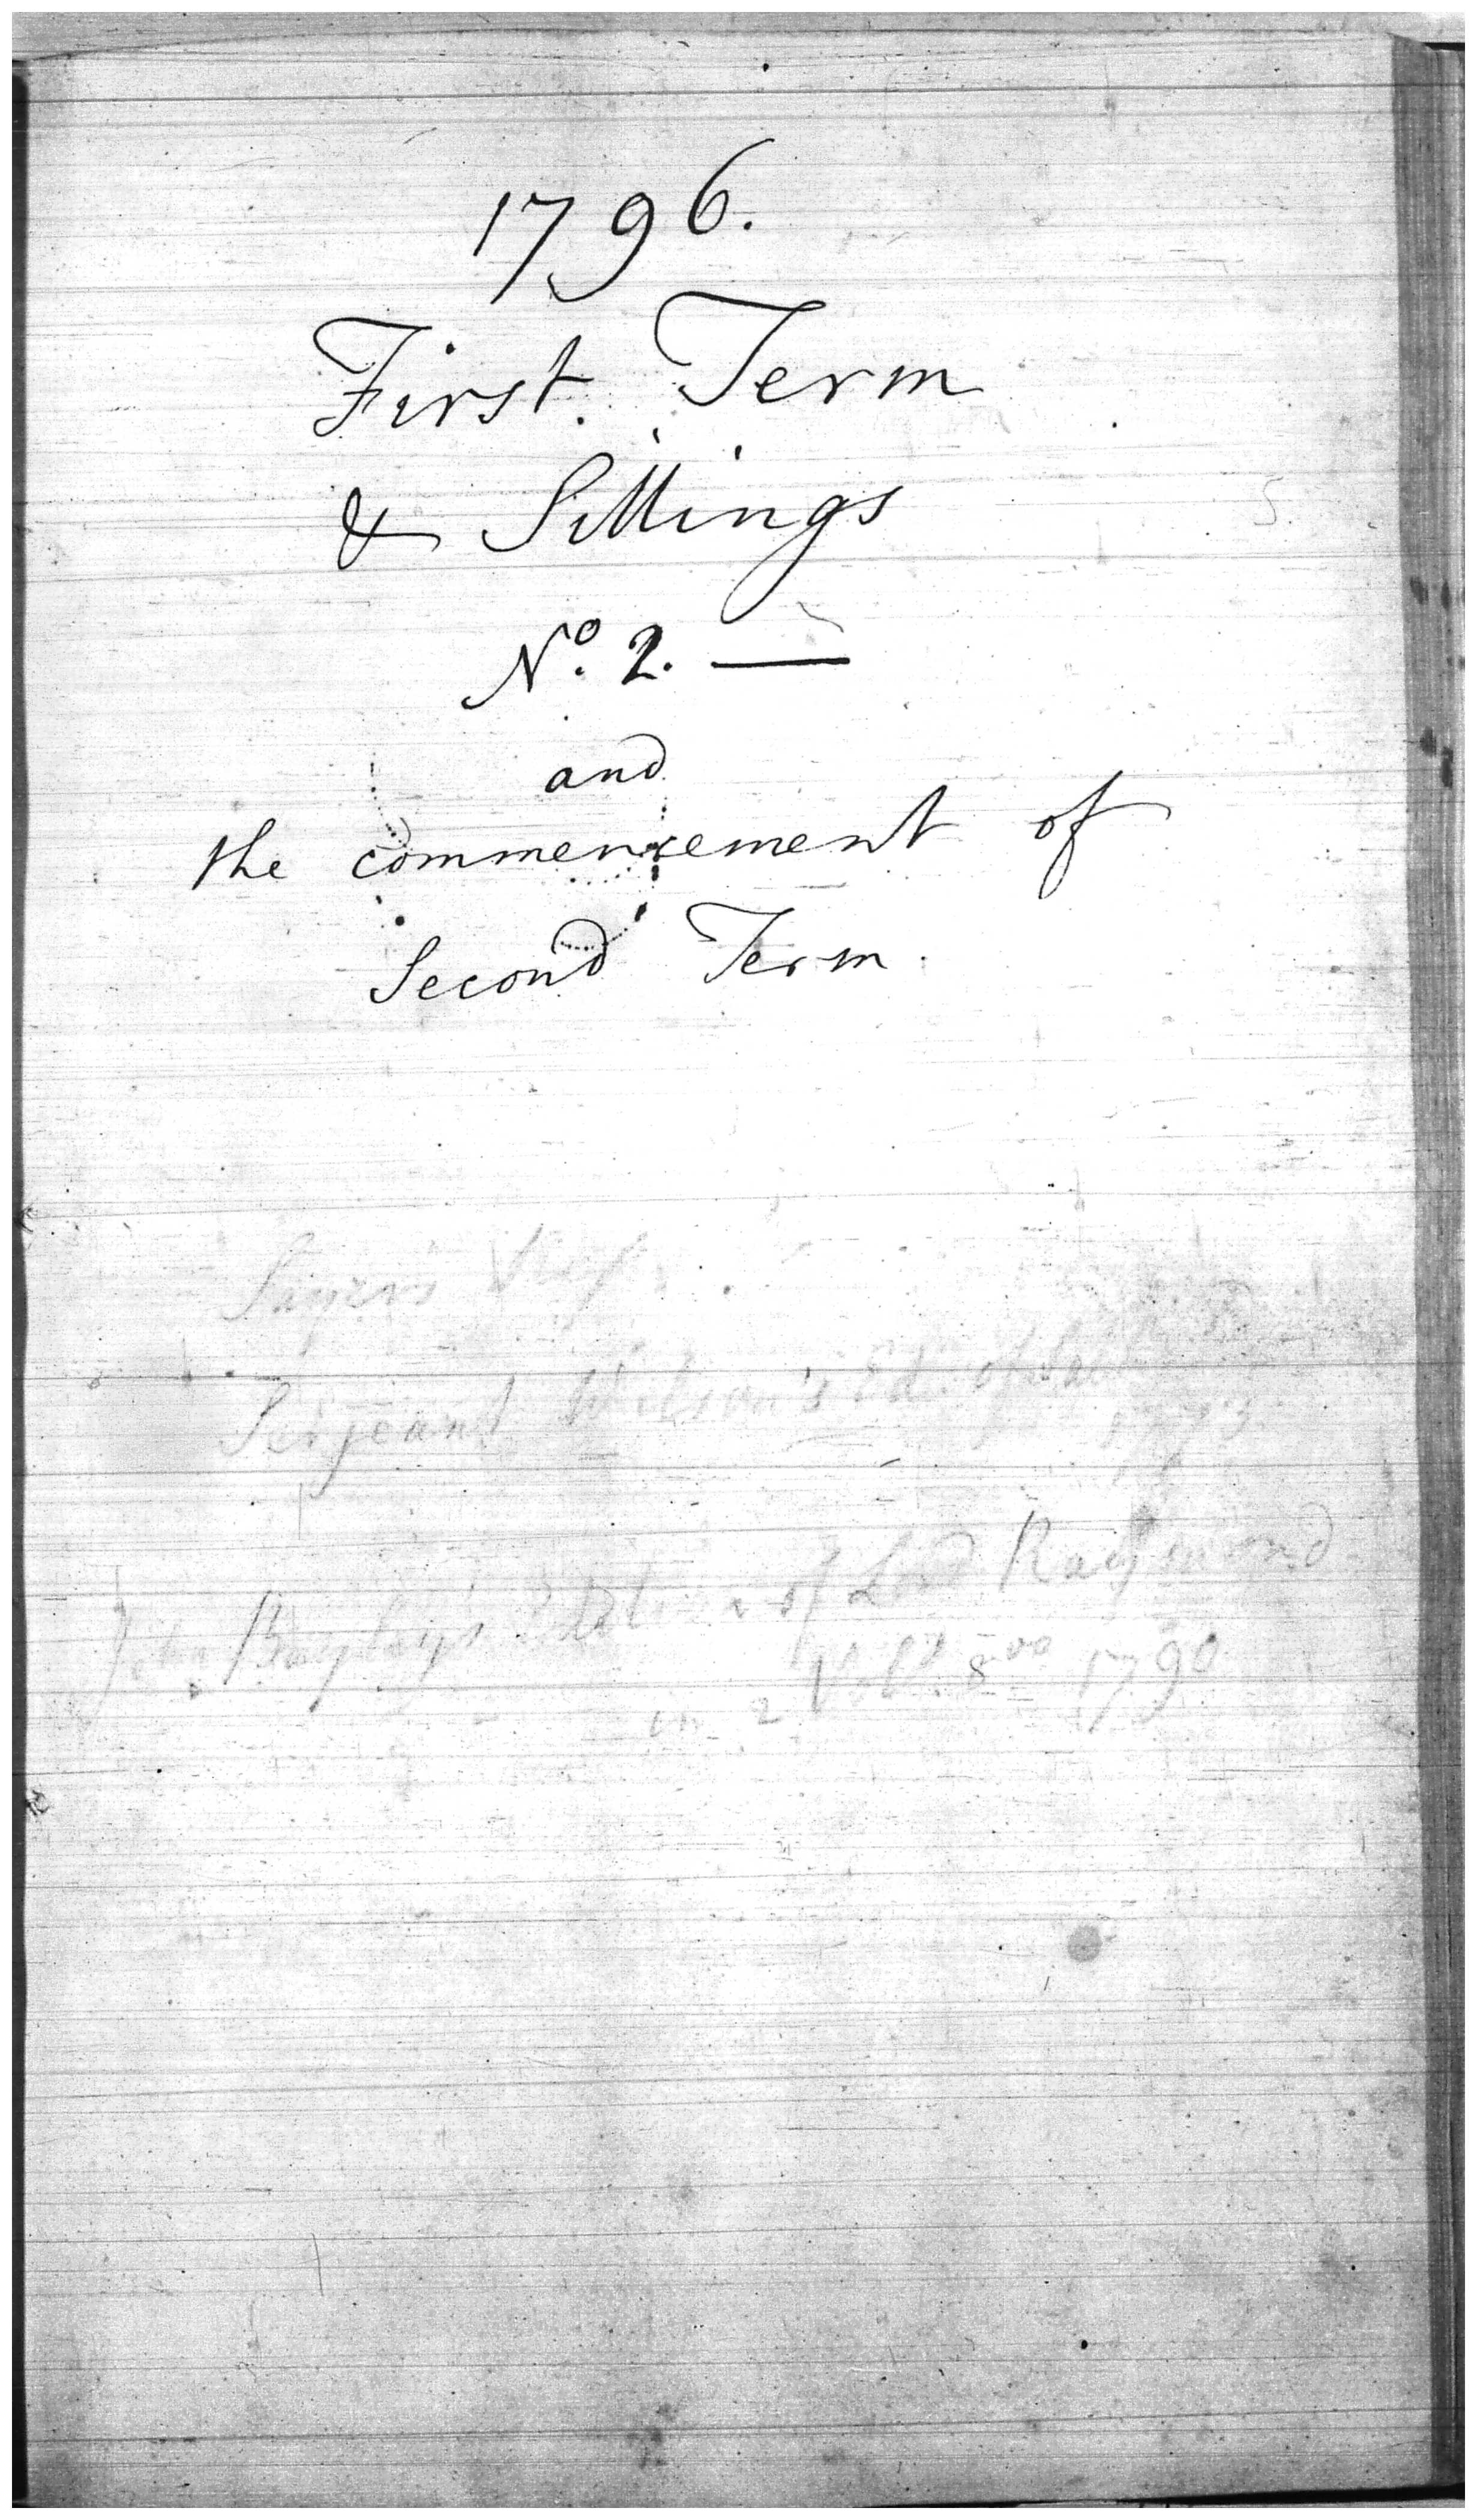 1796.
First Term
& Sittings
Nº. 2. —
and
the commencement of
Second Term.
Sayer's
Serjeant Wilson's Ed. of
John Bayley's Edition of Lord Raymond
in 2 Vols. 8vo 1790